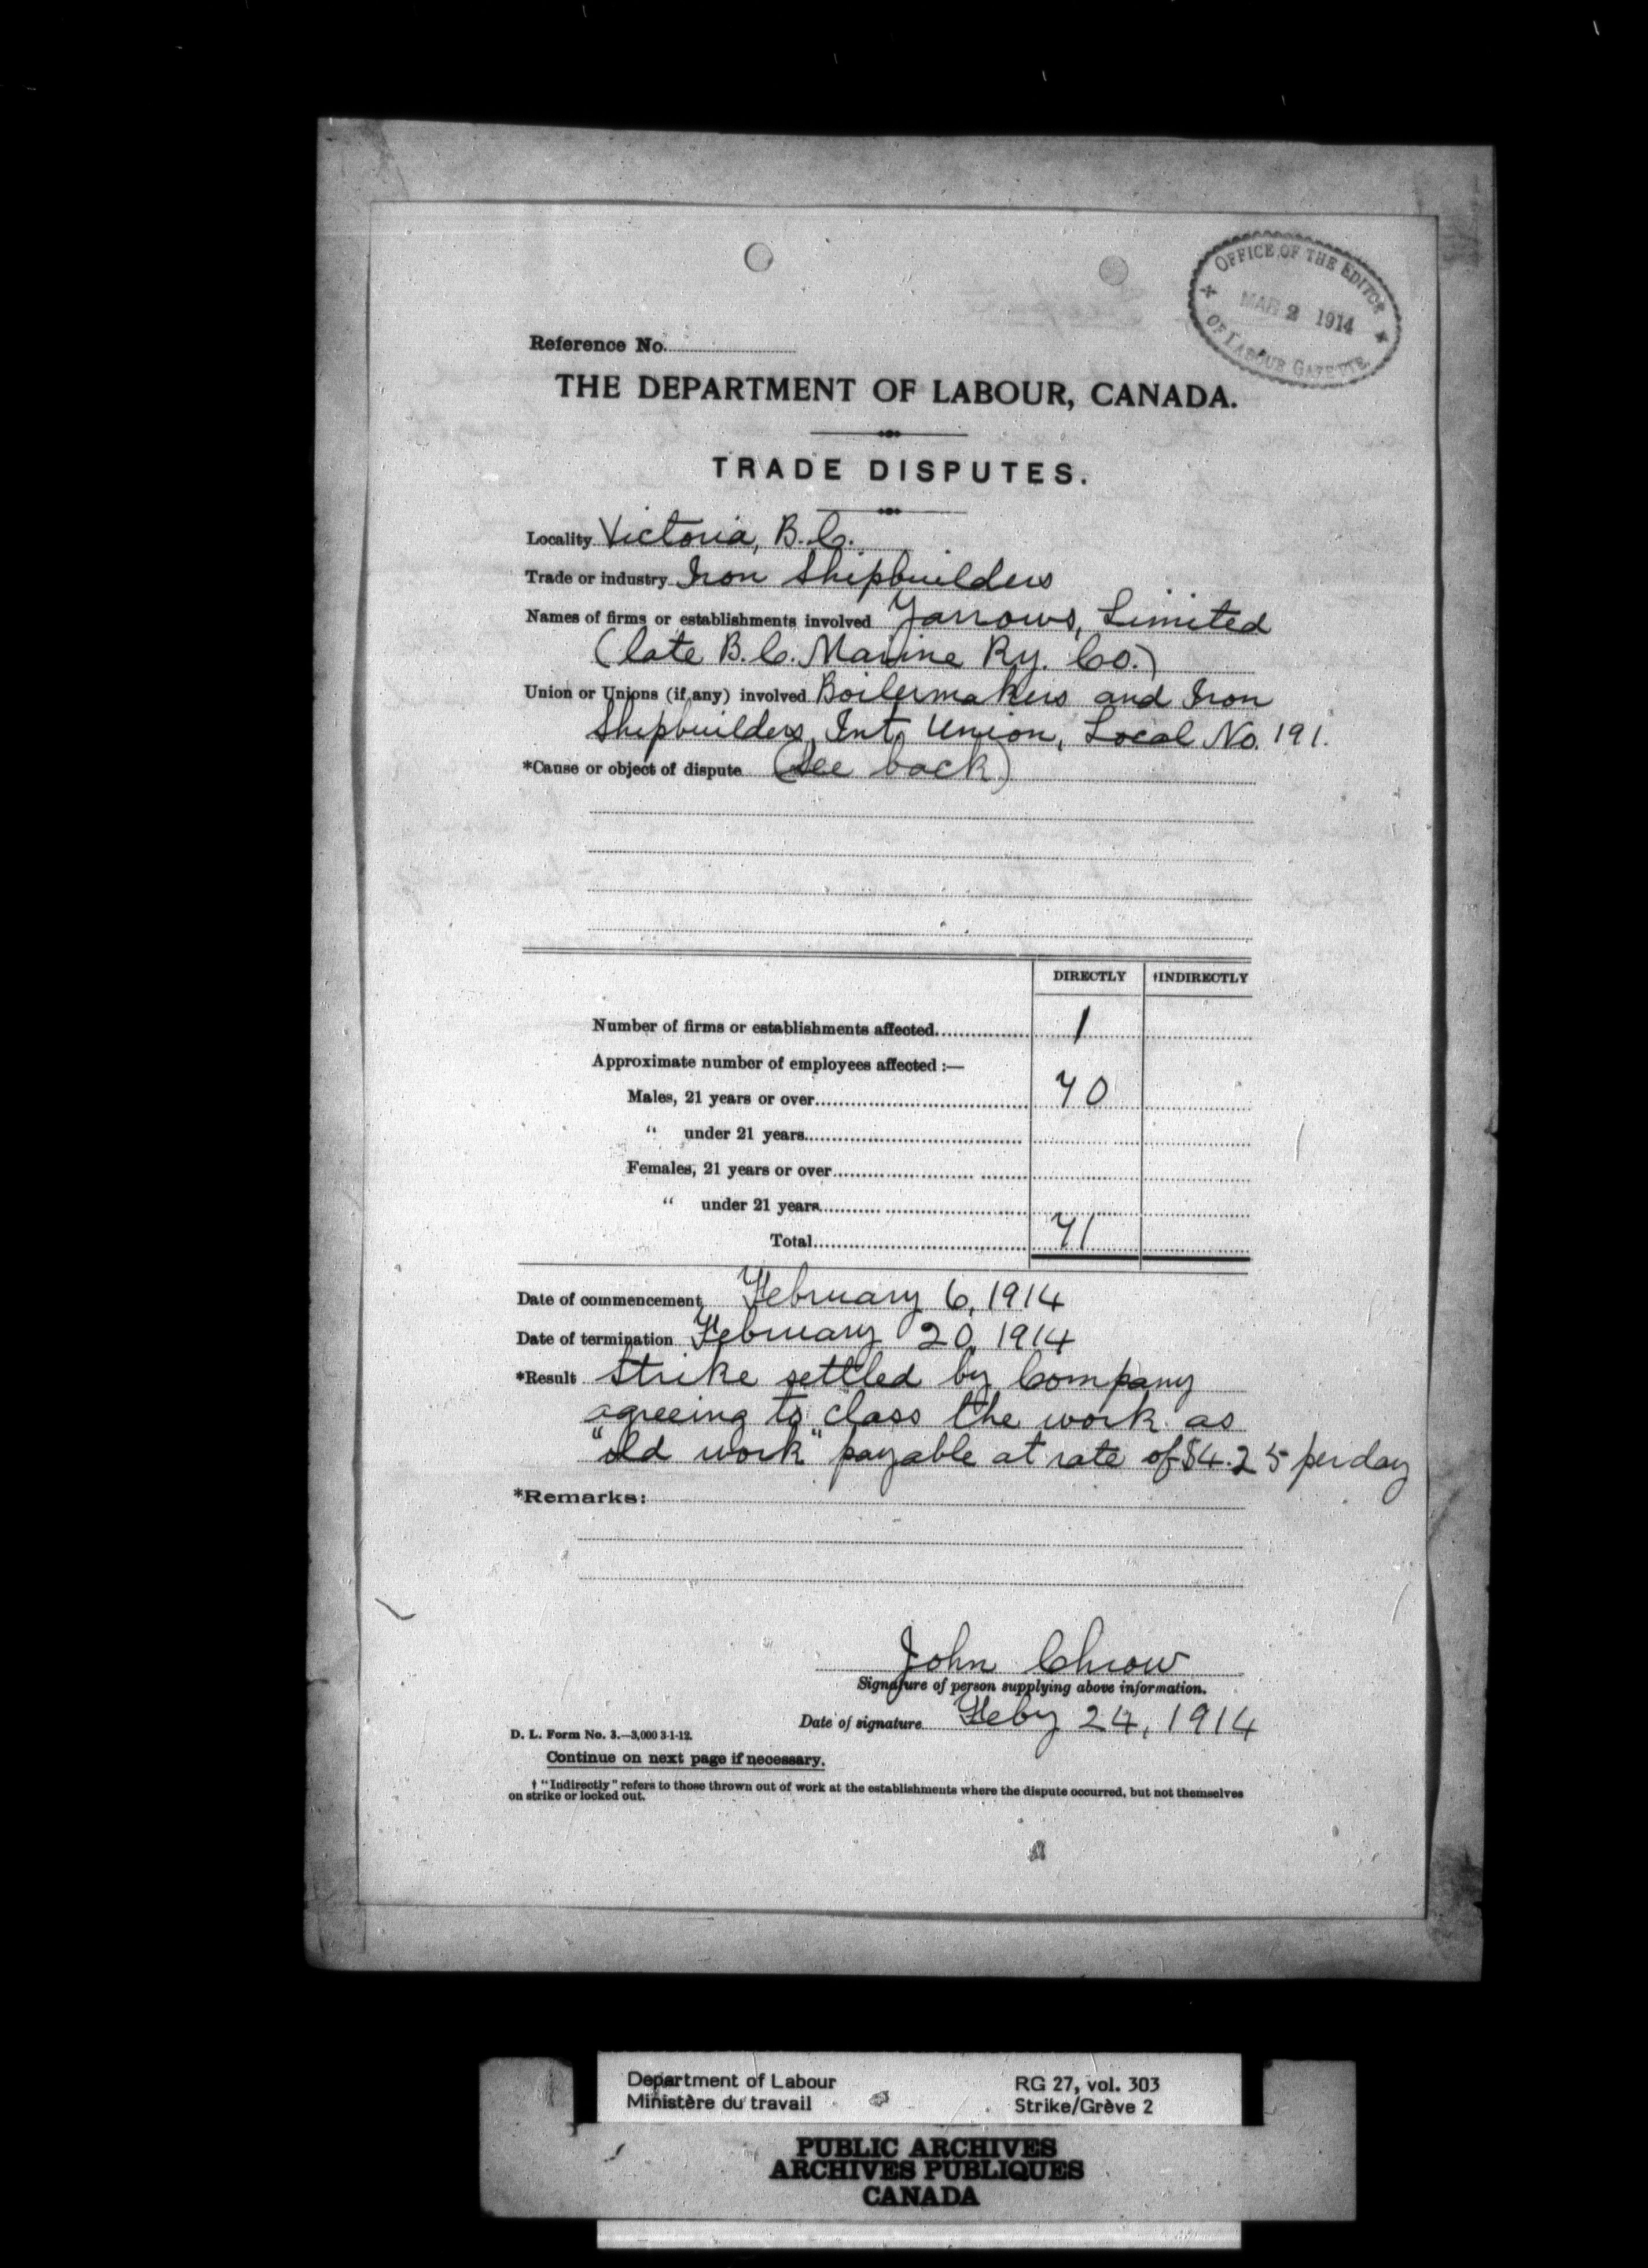 OFFICE OF THE EDITOR
MAR 2 1914
OF LABOUR GAZETTE
Reference No.
THE DEPARTMENT OF LABOUR, CANADA.
TRADE DISPUTES.
Locality Victoria, B.C.
Trade or industry Iron Shipbuilders
Names of firms or establishments involved Yarrows, Limited
(late B.C. Marine Ry. Co.)
Union or Unions (if any) involved Boilermakers and Iron
Shipbuilders, Int. Union, Local No. 191.
*Cause or object of dispute (See back)
DIRECTLY †INDIRECTLY
Number of firms or establishments affected 1
Approximate number of employees affected :—
Males, 21 years or over 70
“ under 21 years
Females, 21 years or over
“ under 21 years
Total 71
Date of commencement February 6, 1914
Date of termination February 20, 1914
*Result Strike settled by Company
agreeing to class the work as
"old work" payable at rate of $4.25 per day
*Remarks:
John Chrow
Signature of person supplying above information.
Date of signature Feby 24, 1914
D. L. Form No. 3.—3,000 3-1-12.
Continue on next page if necessary.
† "Indirectly" refers to those thrown out of work at the establishments where the dispute occurred, but not themselves
on strike or locked out.
Department of Labour RG 27, vol. 303
Ministère du travail Strike/Grève 2
PUBLIC ARCHIVES
ARCHIVES PUBLIQUES
CANADA